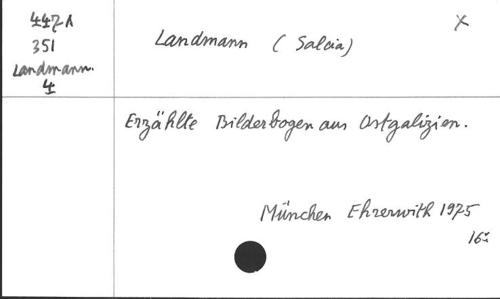 4471
351
Landmann.
4
Landmann (Salcia)
X
Erzählte Bilderbogen aus Ostgalizien.
München Ehrerwith 1975
16: